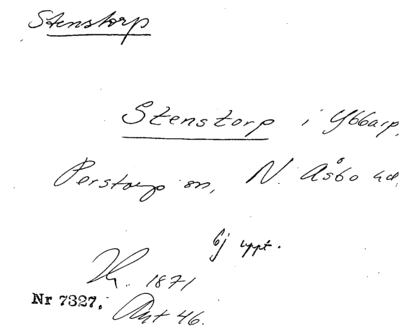 Stenstorp
Stenstorp i Ybbarp,
Perstorp sn, N. Åsbo hd.
Ej uppt.
1871
Nr 7327. Ant 46.